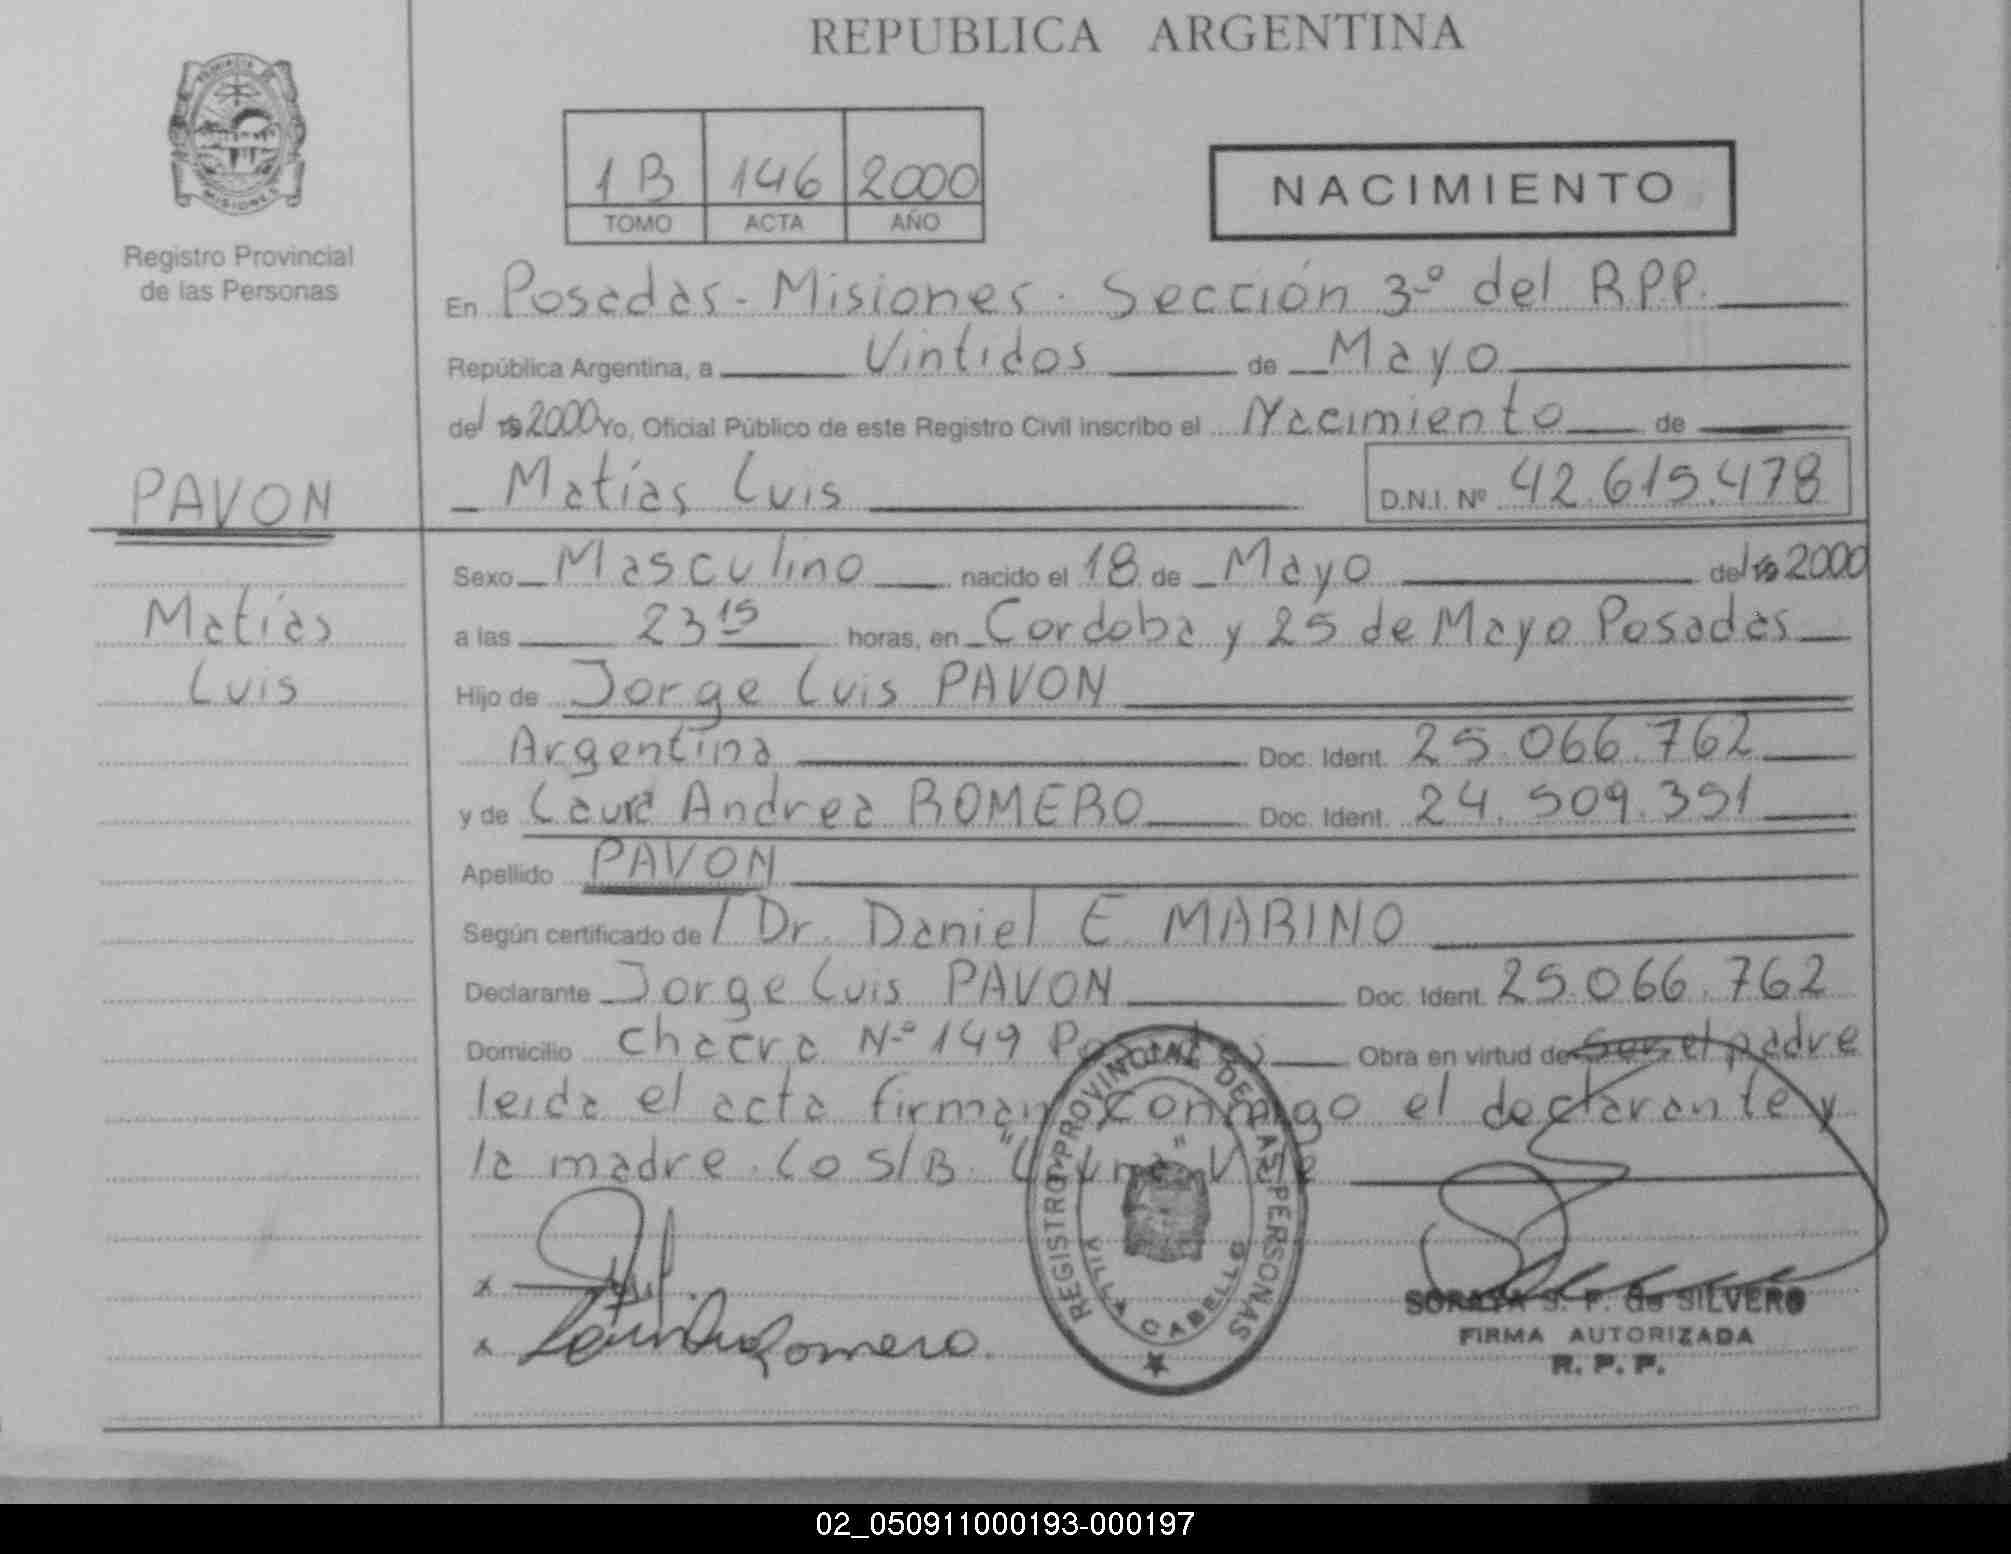 REPUBLICA ARGENTINA
PROVINCIA DE
MISIONES
Registro Provincial
de las Personas
1 B 146 2000
TOMO ACTA AÑO
NACIMIENTO
En Posadas - Misiones - Sección 3º del R.P.P.
República Argentina, a Vintidos de Mayo
del 19 2000 Yo, Oficial Público de este Registro Civil inscribo el Nacimiento de
PAVON
Matías Luis D.N.I. Nº 42.615.478
Matías
Luis
Sexo Masculino nacido el 18 de Mayo del 19 2000
a las 23 15 horas, en Cordoba y 25 de Mayo Posadas
Hijo de Jorge Luis PAVON
Argentina Doc. Ident. 25.066.762
y de Laura Andrea ROMERO Doc. Ident. 24.509.351
Apellido PAVON
Según certificado de / Dr. Daniel E. MARINO
Declarante Jorge Luis PAVON Doc. Ident. 25.066.762
Domicilio Chacra Nº 149 Posadas Obra en virtud de ser el padre
leida el acta firman conmigo el declarante y
la madre. Co S/B.
REGISTRO PROVINCIAL DE LAS PERSONAS
VILLA CABELLO
x
x Romero
SORAYA S. F. de SILVERO
FIRMA AUTORIZADA
R. P. P.
02_050911000193-000197